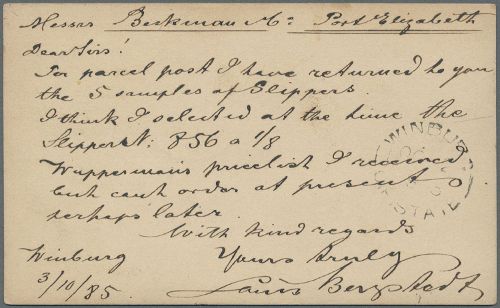 Messrs Beckman & Co: Port Elizabeth
Dear Sirs!
Per parcel post I have returned to you
the 5 samples of Slippers.
I think I selected at the time the
Slippers N: 856 a 1/8
Wuppermans pricelist I received
but cant order at present
perhaps later.
With kind regards
Winburg Yours truly
3/10/85. Louis Bergstedt
WINBURG
STATE